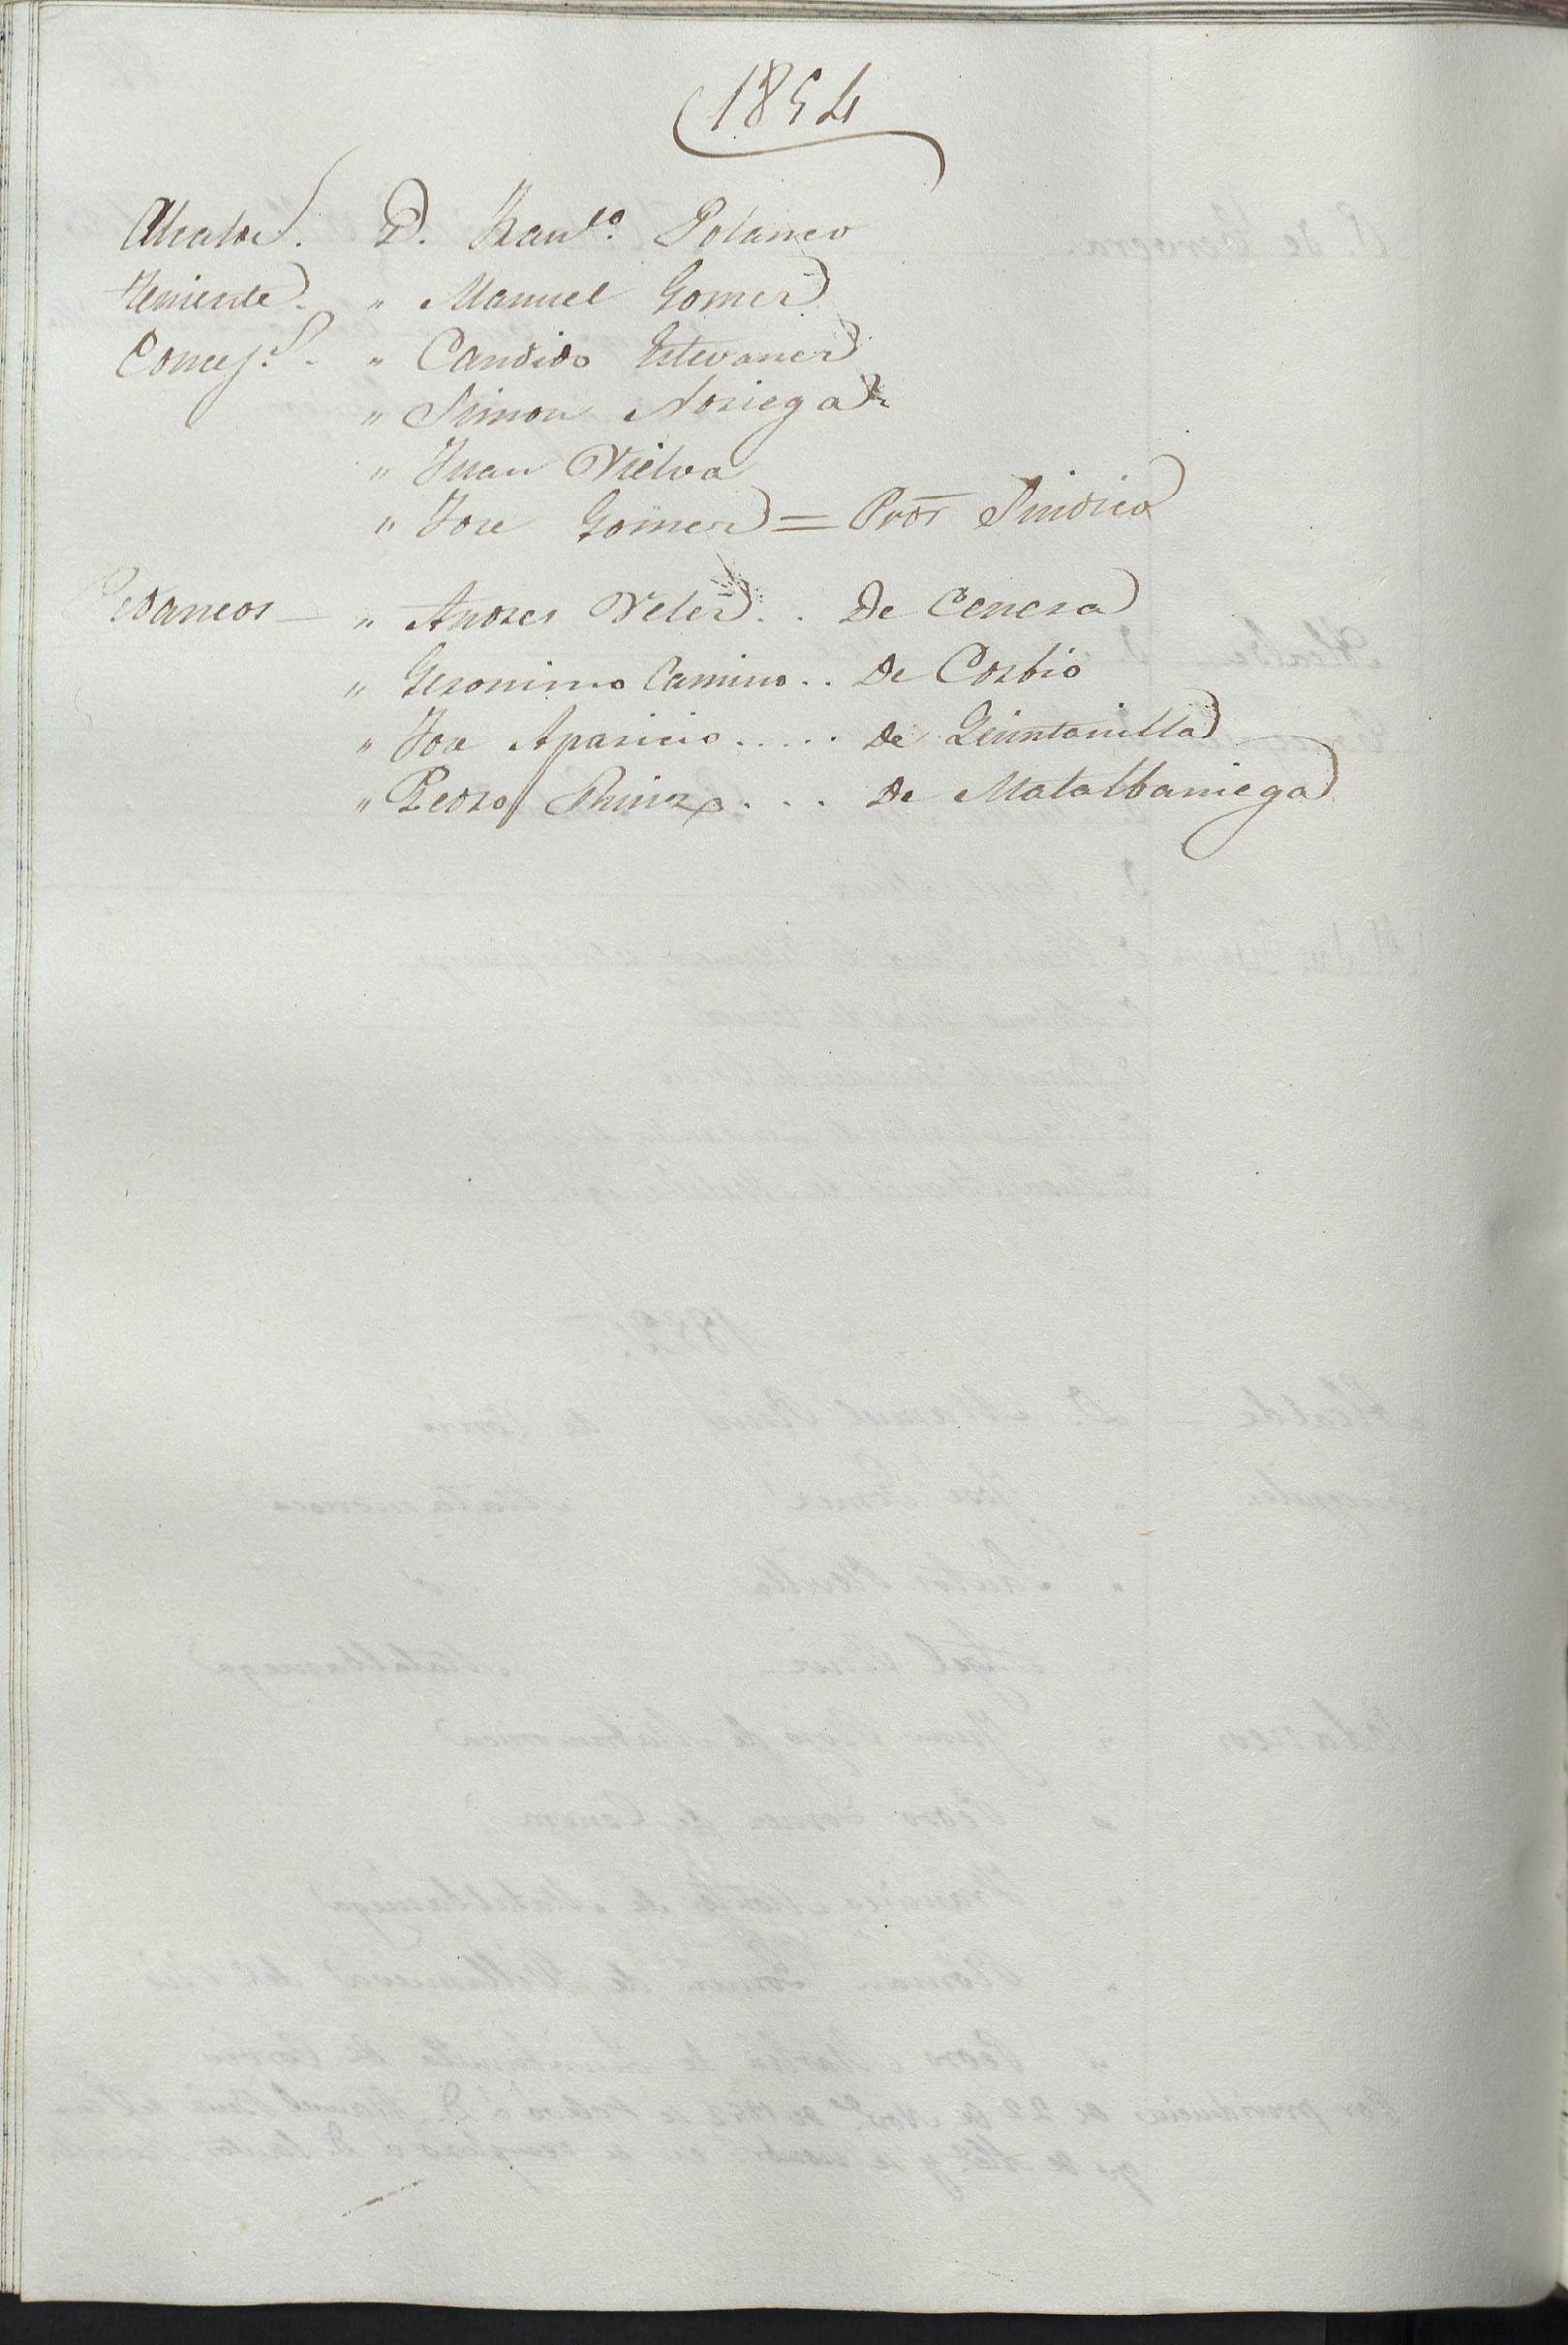 1854
Alcalde. D. Fran.co Polanco
Teniente. " Manuel Gomez
Concej.s. " Candido Estevanez
" Simon Noriega
" Juan Vielva
" Jose Gomez = Pror Sindico
Pedaneos — " Andres Velez . . De Cenera
" Geronimo Camino . . De Corbio
" Jose Aparicio . . . . . De Quintanilla
" Pedro . . . . De Matalbaniega